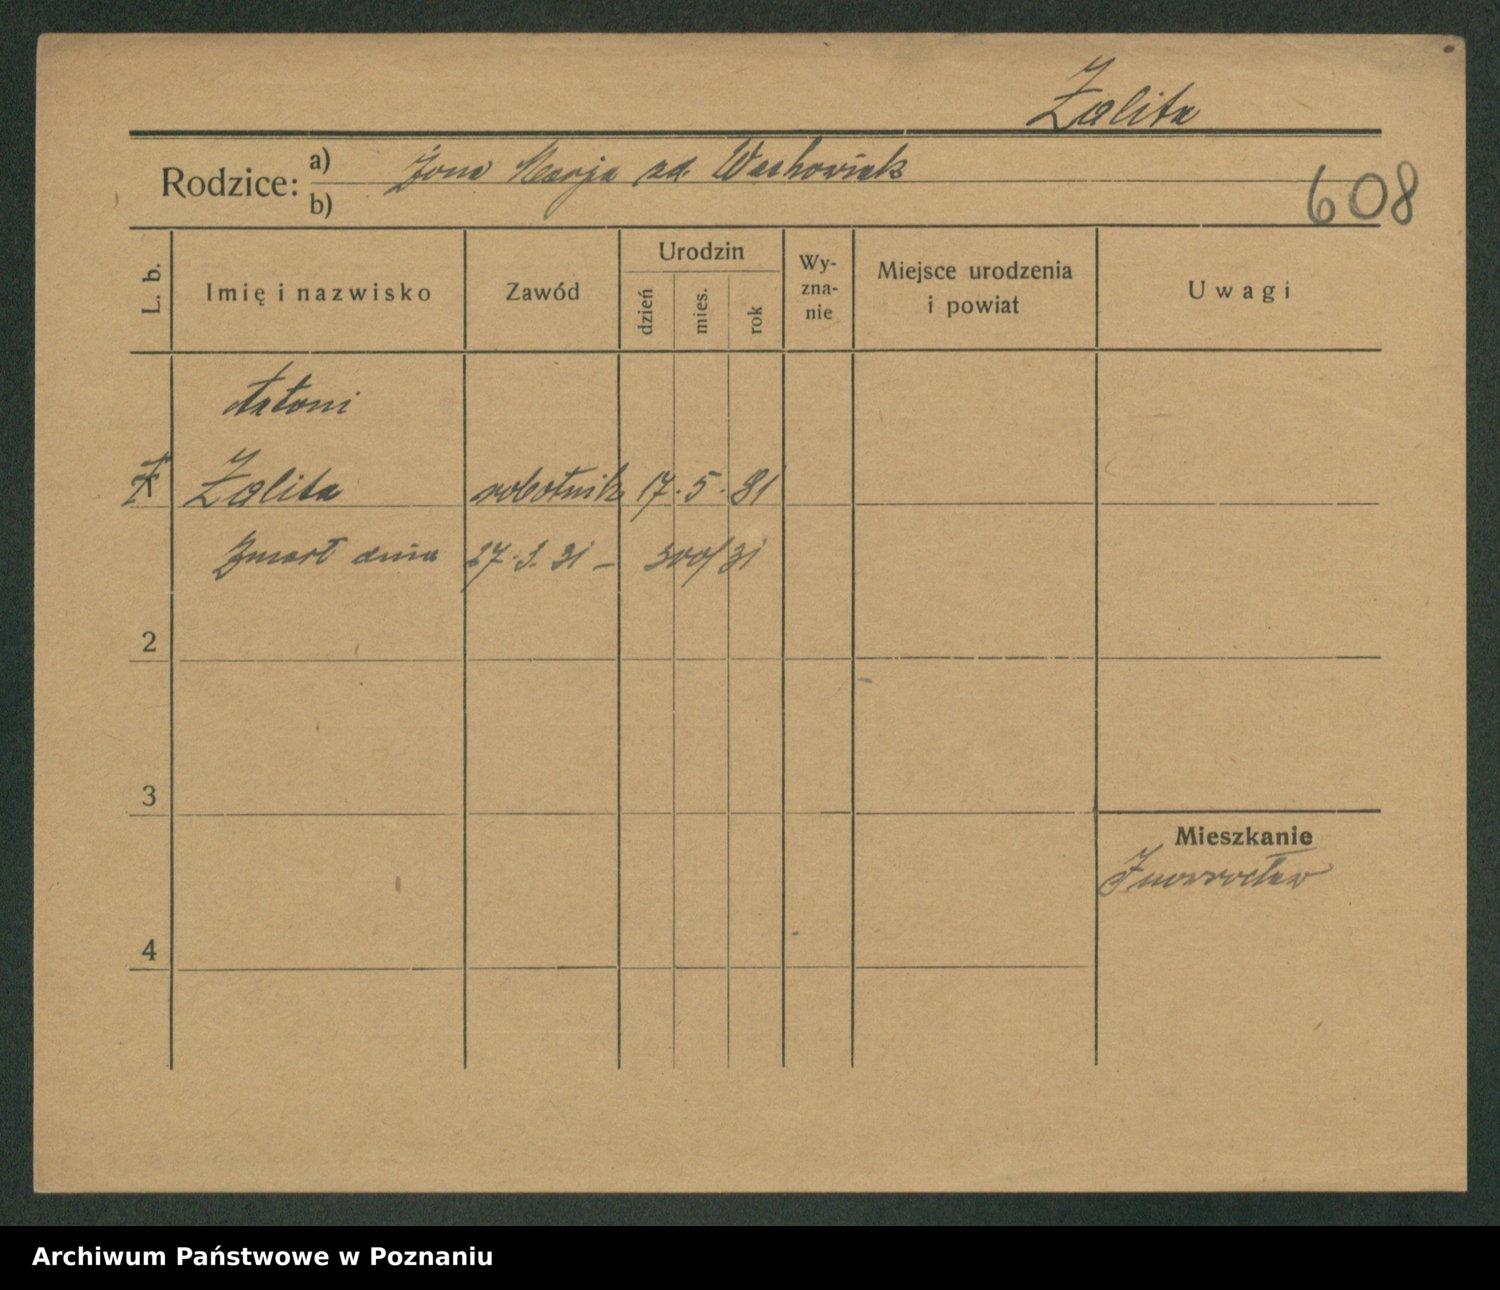 Zalita
Rodzice: a) Żona Marja zd. Wachowiak
b)
608
L. b.
Imię i nazwisko
Zawód
Urodzin
dzień
mies.
rok
Wy-
zna-
nie
Miejsce urodzenia
i powiat
Uwagi
Antoni
Zalita robotnik 17. 5. 81
Zmarł dnia 27. 3. 31 – 300/31
2
3
Mieszkanie
Inowrocław
4
Archiwum Państwowe w Poznaniu